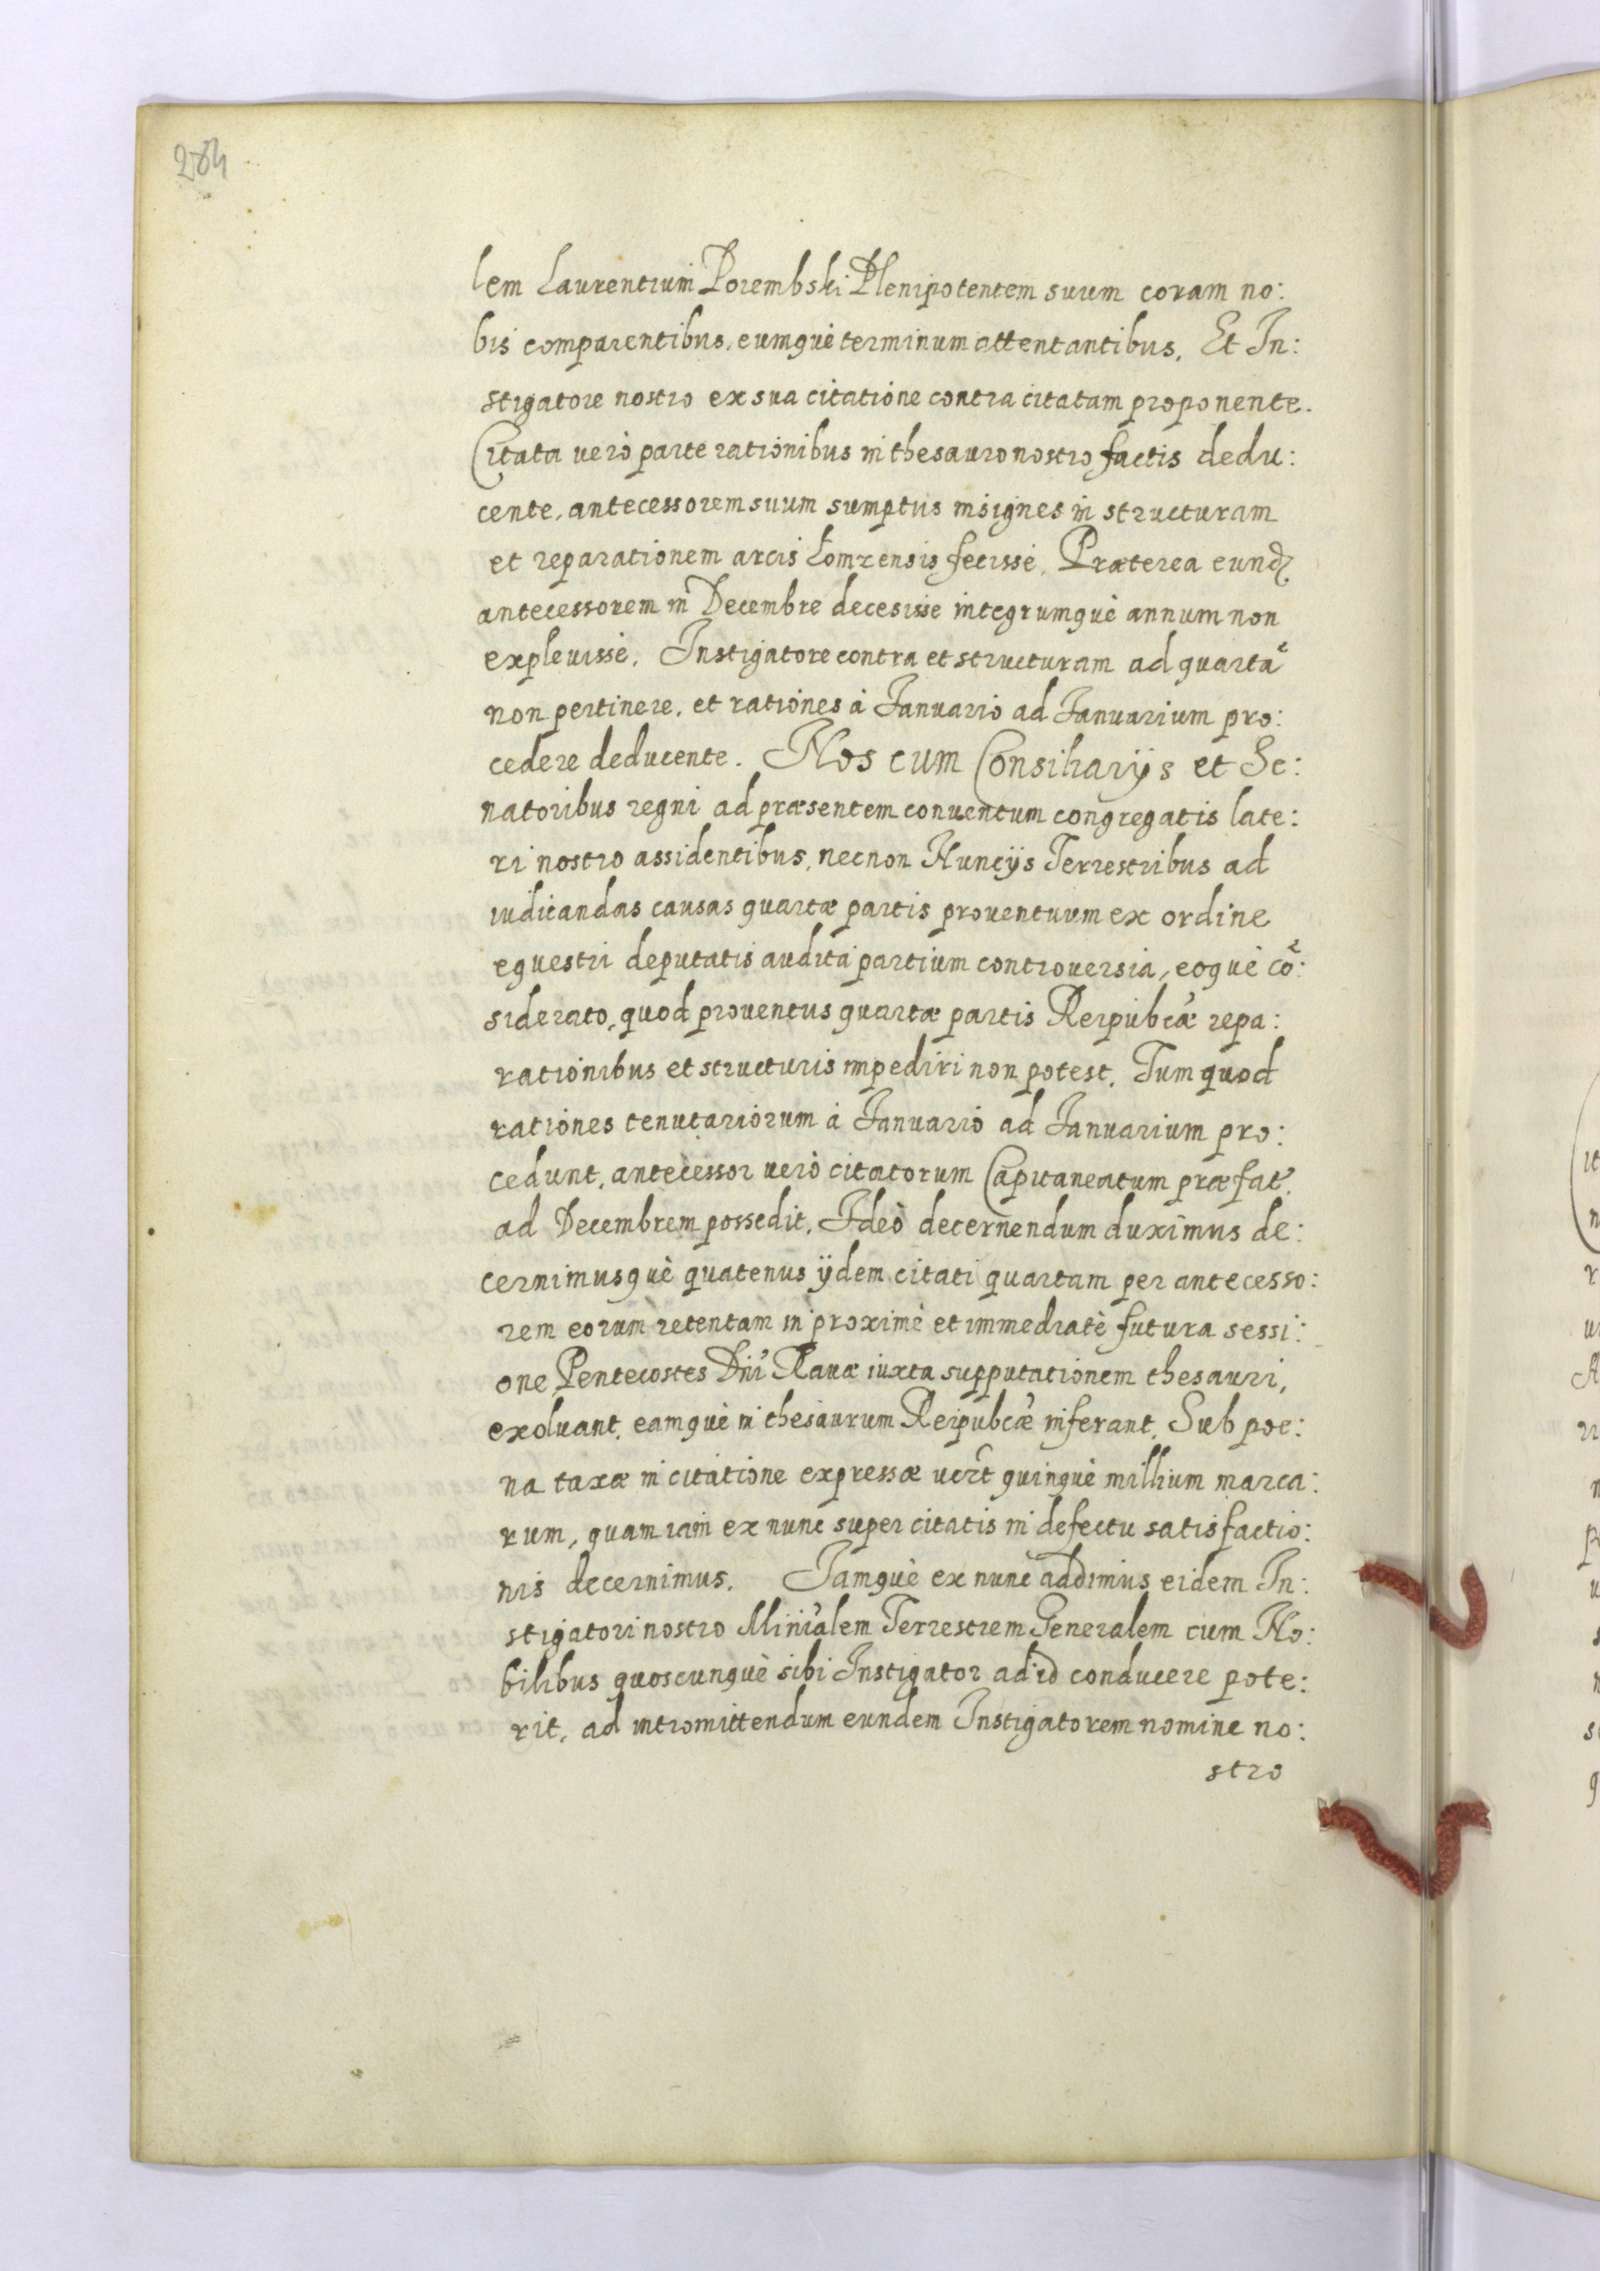 284
lem Laurentium Porembski Plenipotentem suum coram no:
bis comparentibus, eumquè terminum attentantibus. Et In:
stigatore nostro ex sua citatione contra citatam proponente.
Citata verò parte rationibus in thesauro nostro factis dedu:
cente, antecessorem suum sumptus insignes in structuram
et reparationem arcis Łomzensis fecisse. Præterea eund
antecessorem in Decembre decesisse integrumquè annum non
expleuisse. Instigatore contra et structuram ad quartã
non pertinere, et rationes à Ianuario ad Ianuarium pro:
cedere deducente. Nos cum Consiliarijs et Se:
natoribus regni ad præsentem conuentum congregatis late:
ri nostro assidentibus, necnon Nuncijs Terrestribus ad
iudicandas causas quartæ partis prouentuum ex ordine
equestri deputatis audita partium controuersia, eoquè cõ:
siderato, quod prouentus quartæ partis Reipubcæ repa:
rationibus et structuris impediri non potest. Tum quod
rationes tenutariorum à Ianuario ad Ianuarium pro:
cedunt, antecessor verò citatorum Capitaneatum præfat.
ad Decembrem possedit. Ideò decernendum duximus de:
cernimusquè quatenus ijdem citati quartam per antecesso:
rem eorum retentam in proximè et immediatè futura sessi:
one Pentecostes Dni Rauæ iuxta supputationem thesauri,
exoluant, eamquè in thesaurum Reipubcæ inferant. Sub poe:
na taxæ in citatione expressæ vert quinquè millium marca:
rum, quam iam ex nunc super citatis in defectu satisfactio:
nis decernimus. Iamquè ex nunc addimus eidem In:
stigatori nostro Minialem Terrestrem Generalem cum No:
bilibus quoscunquè sibi Instigator ad id conducere pote:
rit, ad intromittendum eundem Instigatorem nomine no:
stro